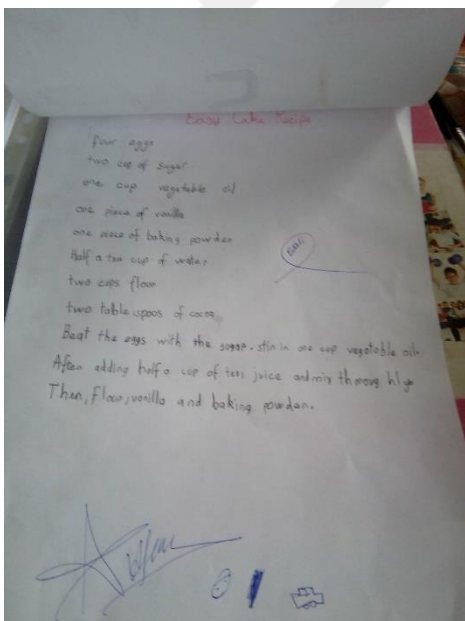 Easy Cake Recipe
four eggs
two cup of sugar
one cup vegetable oil
one piece of vanilla
one piece of baking powder
Half a tea cup of water
two cups floor
two table spoos of cocoa
Beat the eggs with the sugar. stir in one cup vegatable oil.
After adding half a cup of tea, juice and mix thoroug hly.
Then, floor, vanilla and baking powder.